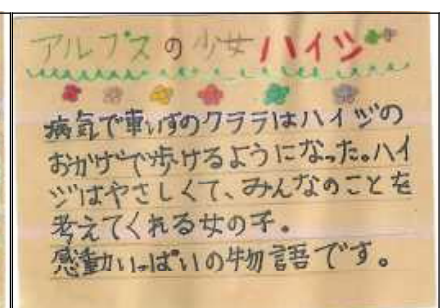 アルプスの少女ハイジ
病気で車いすのクララはハイジの
おかげで歩けるようになった。ハイ
ジはやさしくて、みんなのことを
考えてくれる女の子。
感動いっぱいの物語です。